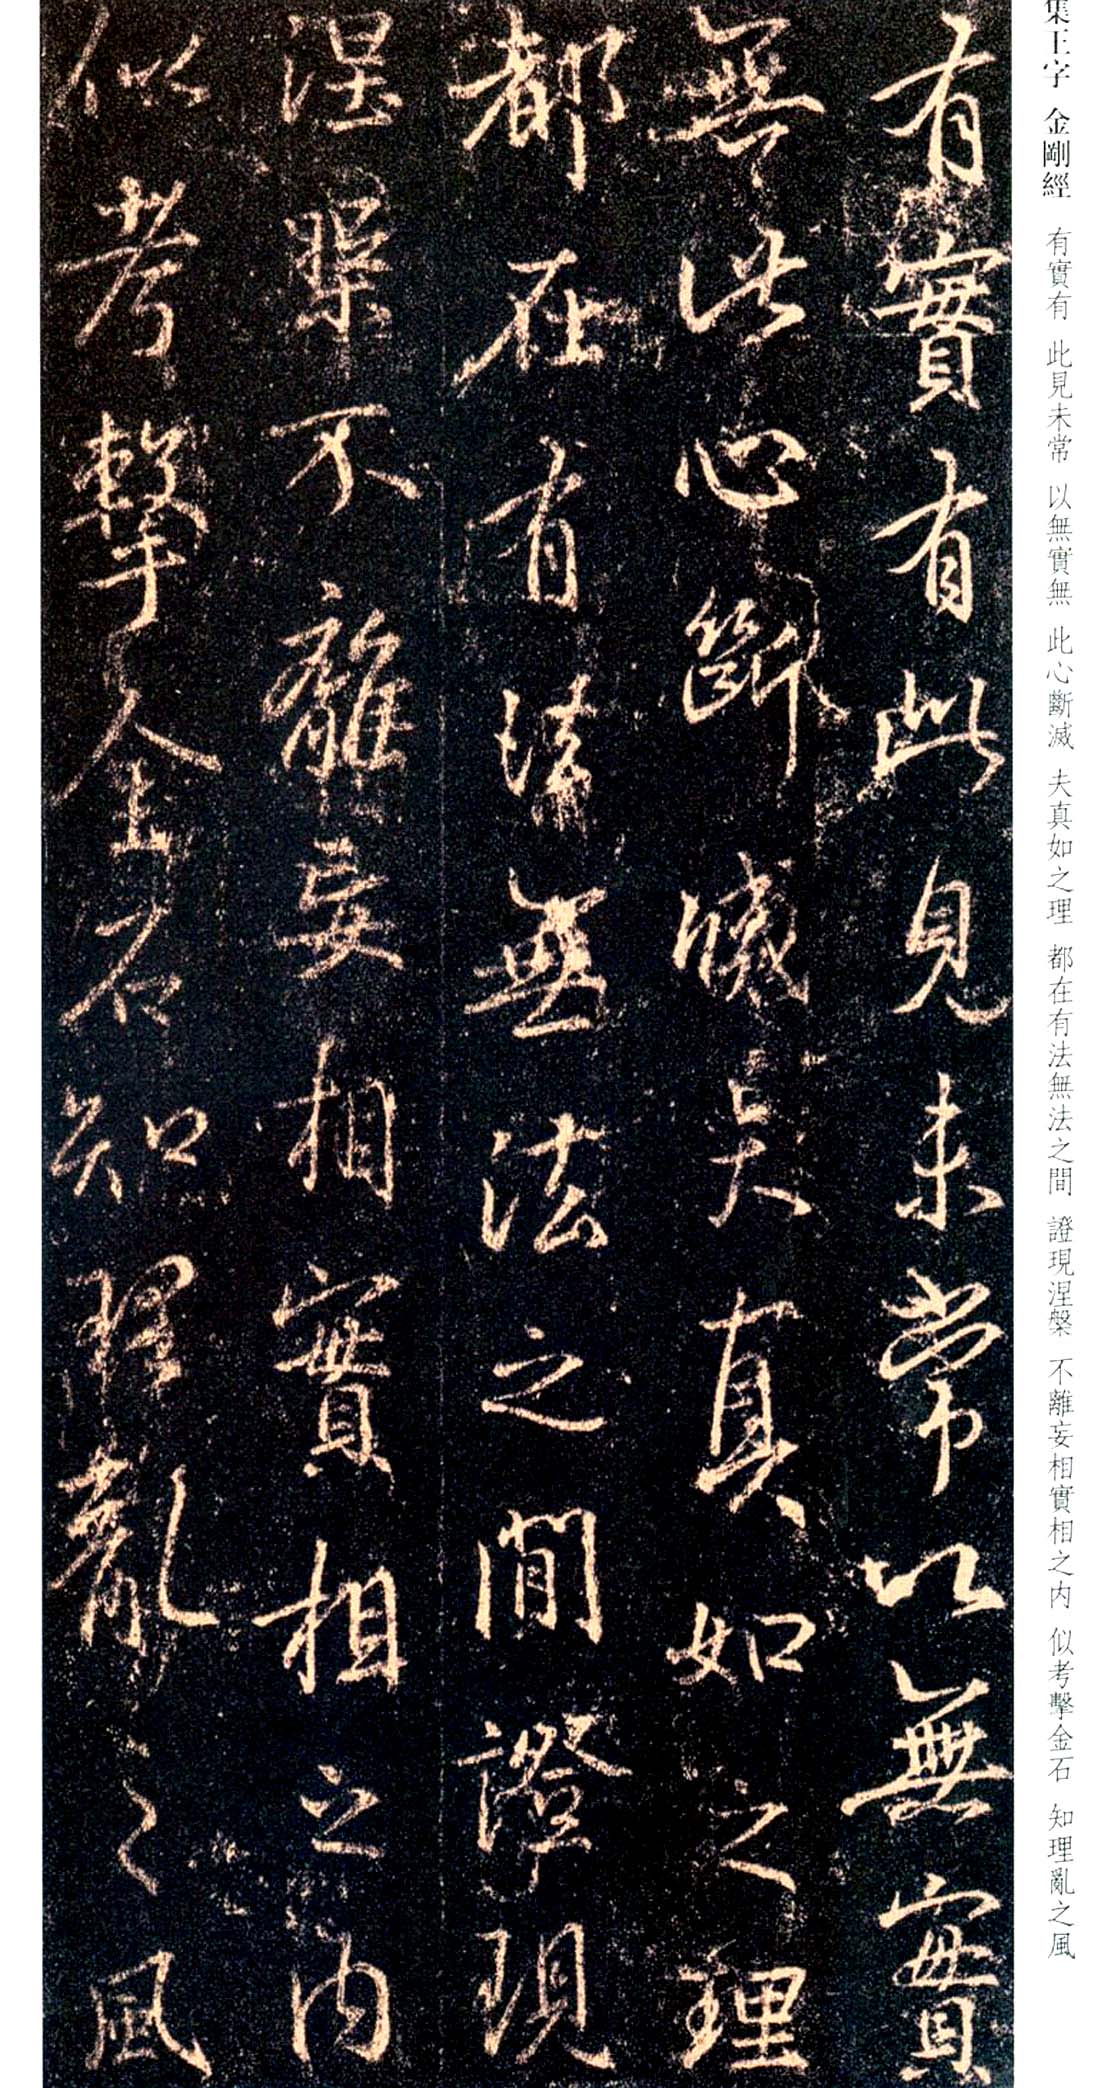 集王字 金剛經 有實有 此見未常 以無實無 此心斷滅 夫真如之理 都在有法無法之間 證現涅槃 不離妄相實相之内 似考擊金石 知理亂之風
有實有此見未常以無實
無此心斷滅夫真如之理
都在有法無法之間證現
涅槃不離妄相實相之内
似考擊金石知理亂之風